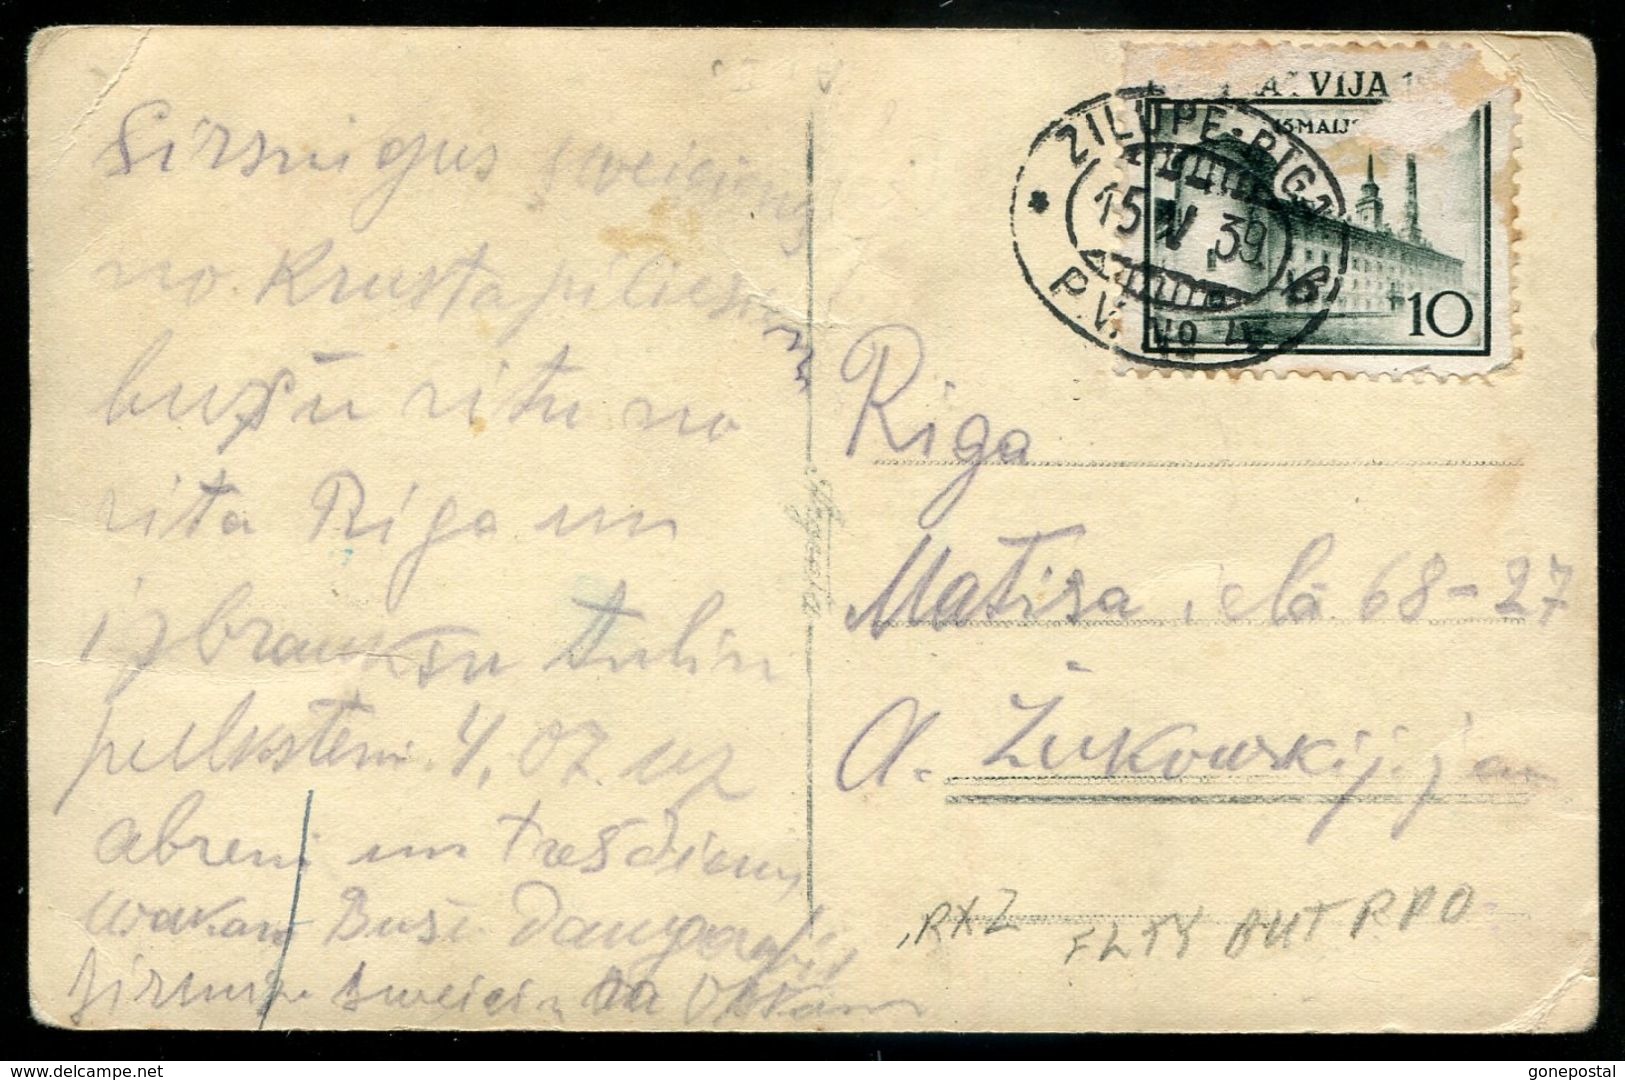 Sirsnigus sweicienus
no Krustapiliešiem
bušu ritu no
rita Riga un
izbraukšu tulin
pulksteni 4,07 uz
abreni un trešdienu
wakar Buši Daugavpilī
Sirsnigi sweicina
Atklātne
LATVIJA
15 MAIJS
10
ZILUPE-RIGA
15 V 39
P.V. No 4
Riga
Matisa ielā 68-27
A. Žukowskij
RXZ
FLTY BUT RPO
www.delcampe.net
gonepostal